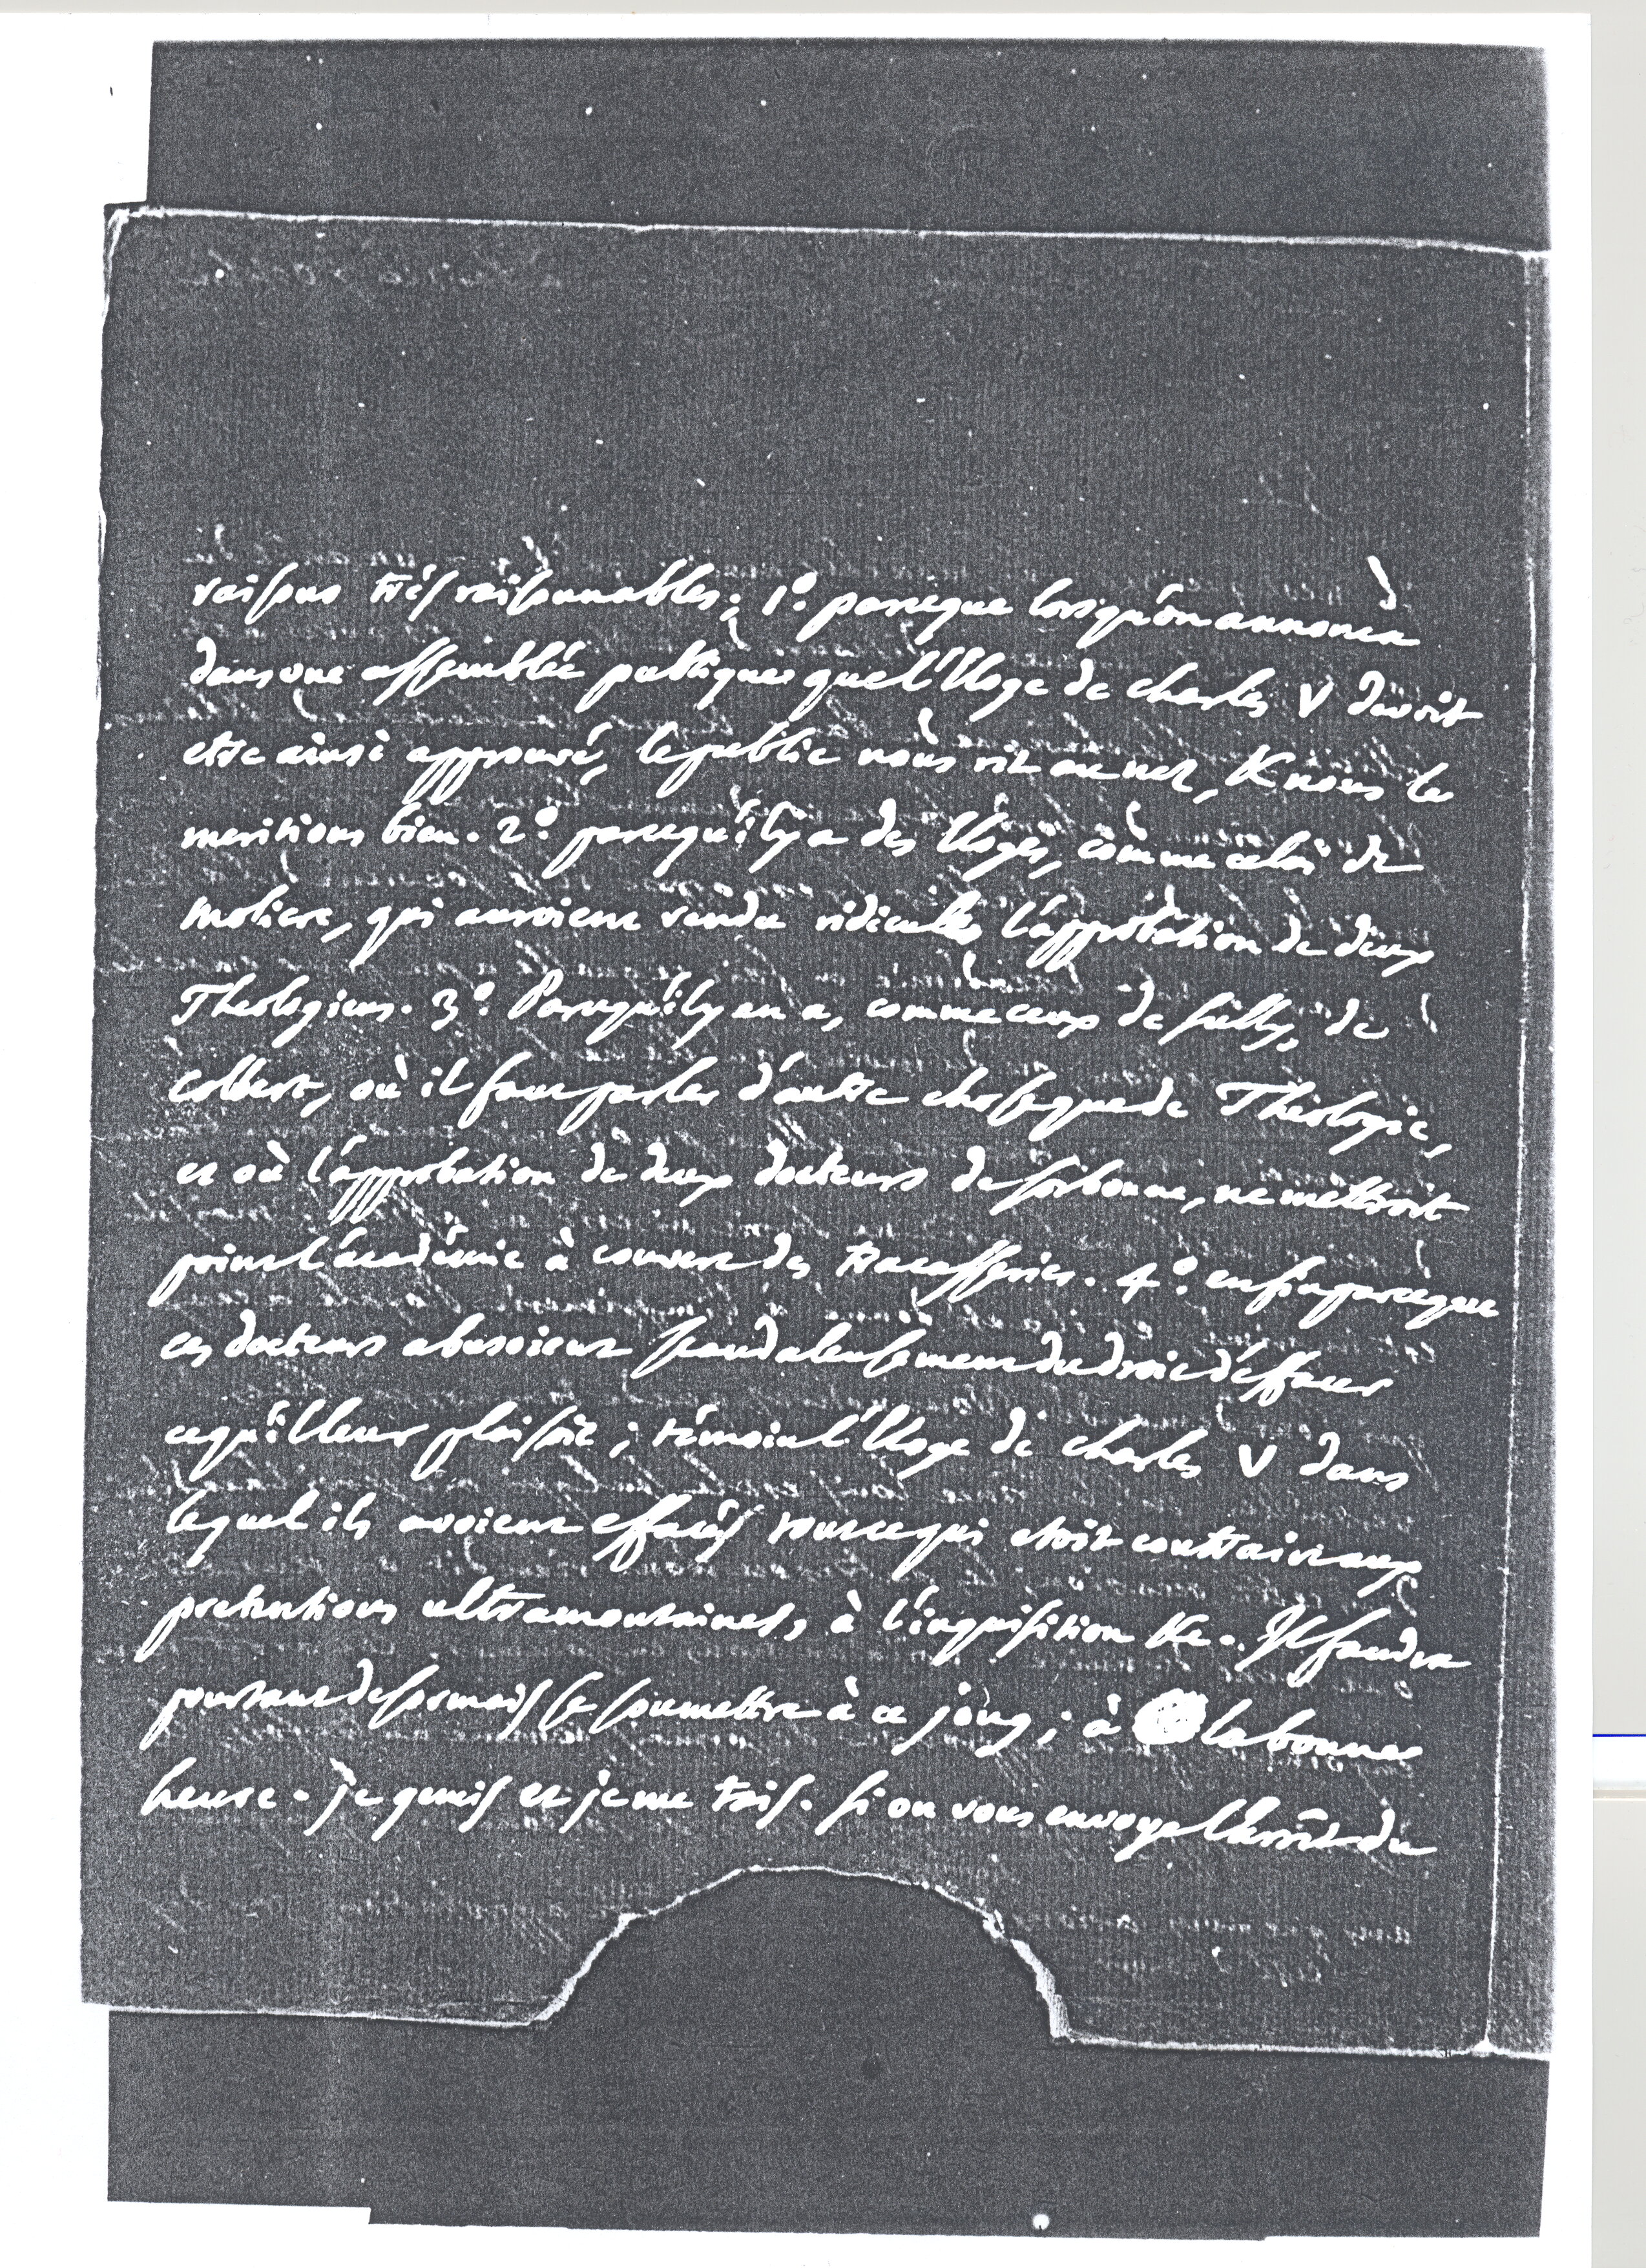 raisons très raisonnables; 1°. parceque lorsqu'on annonça
dans une assemblée publique que l'Eloge de Charles V devoit
etre ainsi approuvé, le public nous rit au nez, & nous le
meritions bien. 2°. parcequ'il y a des Eloges, comme celui de
Moliere, qui auroient rendu ridicules l'approbation de deux
Theologiens. 3°. Parcequ'il y en a, comme ceux de Sully, de
Colbert, où il faut parler d'autre chose que de Théologie,
et où l'approbation de deux docteurs de Sorbonne, ne mettroit
point l'académie à couvert des tracasseries. 4°. enfin parceque
ces docteurs abusoient scandaleusement du droit d'effacer
ce qu'il leur plaisoit; témoin l'Eloge de Charles V dans
lequel ils avoient effacés tout ce qui etoit contraire aux
pretentions ultramontaines, à l'inquisition &c. Il faudra
pourtant desormais se soumettre à ce joug; à la bonne
heure. je gemis et je me tais. Si on vous envoye l'arrêt du